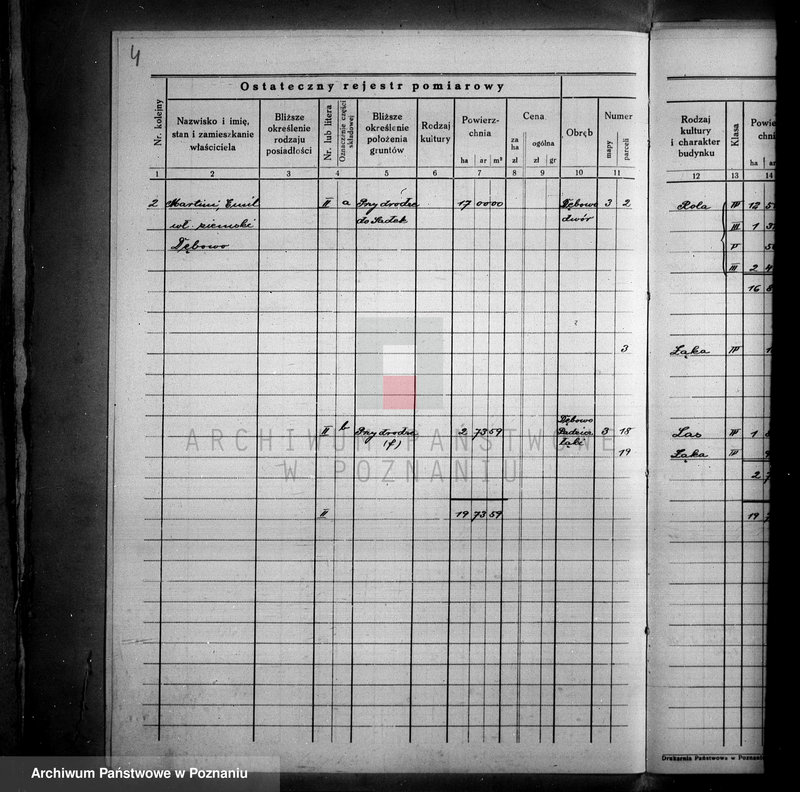 4
Ostateczny rejestr pomiarowy
Nr. kolejny
Nazwisko i imię, stan i zamieszkanie właściciela
Bliższe określenie rodzaju posiadłości
Nr. lub litera
Oznaczenie części składowej
Bliższe określenie położenia gruntów
Rodzaj kultury
Powierzchnia
ha ar m²
Cena
za ha zł
ogólna
zł gr
Obręb
Numer
mapy
parceli
Rodzaj kultury i charakter budynku
Klasa
Powie
chni
ha ar
1 2 3 4 5 6 7 8 9 10 11 12 13 14
2 Martini, Emil II a Przy drodze 17 00 00 Dębowo 3 2 Rola IV 12 5
wł. ziemski do Sadek dwór III 1 3
Dębowo IV 5
III 2 4
16 8
3 Łąka IV 1
Dębowo
II b Przy drodze 2 73 59 3 18 Las III 1
(f) łaki 19 Łąka IV 9
2 7
II 19 73 59 19 7
ARCHIWUM PAŃSTWOWE
W POZNANIU
Drukarnia Państwowa w Poznani
Archiwum Państwowe w Poznaniu